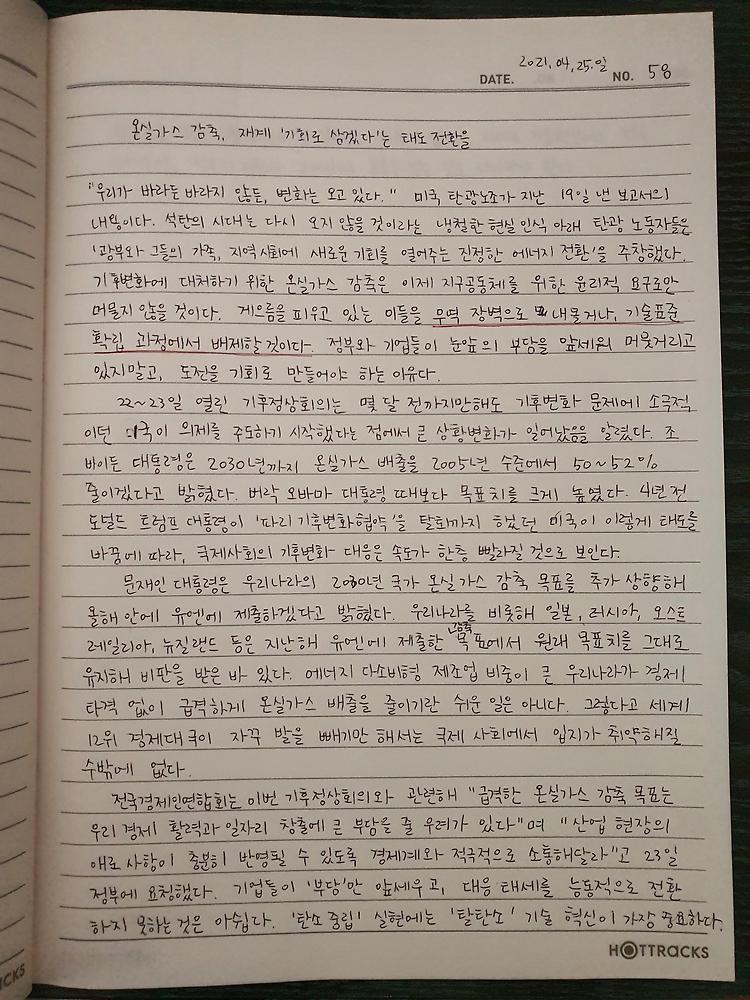 DATE. 2021.04.25.일 NO. 58
온실가스 감축, 재계 '기회로 삼겠다'는 태도 전환을
"우리가 바라든 바라지 않든, 변화는 오고 있다." 미국 탄광노조가 지난 19일 낸 보고서의
내용이다. 석탄의 시대는 다시 오지 않을 것이라는 냉철한 현실 인식 아래 탄광 노동자들은
'광부와 그들의 가족, 지역 사회에 새로운 기회를 열어주는 진정한 에너지 전환'을 주창했다.
기후변화에 대처하기 위한 온실가스 감축은 이제 지구공동체를 위한 윤리적 요구로만
머물지 않을 것이다. 게으름을 피우고 있는 이들을 무역 장벽으로 내몰거나, 기술표준
확립 과정에서 배제할 것이다. 정부와 기업들이 눈앞의 부담을 앞세워 머뭇거리고
있지말고, 도전을 기회로 만들어야 하는 이유다.
22~23일 열린 기후정상회의는 몇 달 전까지만해도 기후변화 문제에 소극적
이던 미국이 의제를 주도하기 시작했다는 점에서 큰 상황변화가 일어났음을 알렸다. 조
바이든 대통령은 2030년까지 온실가스 배출을 2005년 수준에서 50~52%
줄이겠다고 밝혔다. 버락 오바마 대통령 때보다 목표치를 크게 높였다. 4년 전
도널드 트럼프 대통령이 '파리 기후변화협약'을 탈퇴까지 했던 미국이 이렇게 태도를
바꿈에 따라, 국제사회의 기후변화 대응은 속도가 한층 빨라질 것으로 보인다.
문재인 대통령은 우리나라의 2030년 국가 온실가스 감축 목표를 추가 상향해
올해 안에 유엔에 제출하겠다고 밝혔다. 우리나라를 비롯해 일본, 러시아, 오스트
레일리아, 뉴질랜드 등은 지난해 유엔에 제출한 감축 목표에서 원래 목표치를 그대로
유지해 비판을 받은 바 있다. 에너지 다소비형 제조업 비중이 큰 우리나라가 경제
타격 없이 급격하게 온실가스 배출을 줄이기란 쉬운 일은 아니다. 그렇다고 세계
12위 경제대국이 자꾸 발을 빼기만 해서는 국제 사회에서 입지가 취약해질
수밖에 없다.
전국경제인연합회는 이번 기후정상회의와 관련해 "급격한 온실가스 감축 목표는
우리 경제 활력과 일자리 창출에 큰 부담을 줄 우려가 있다"며 "산업 현장의
애로 사항이 충분히 반영될 수 있도록 경제계와 적극적으로 소통해달라"고 23일
정부에 요청했다. 기업들이 '부담'만 앞세우고, 대응 태세를 능동적으로 전환
하지 못하는 것은 아쉽다. '탄소 중립' 실현에는 '탈탄소' 기술 혁신이 가장 중요하다.
HOTTRACKS
ACKS